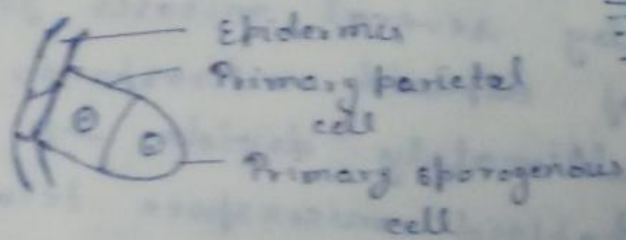 Epidermis
Primary parietal
cell
Primary sporogenous
cell